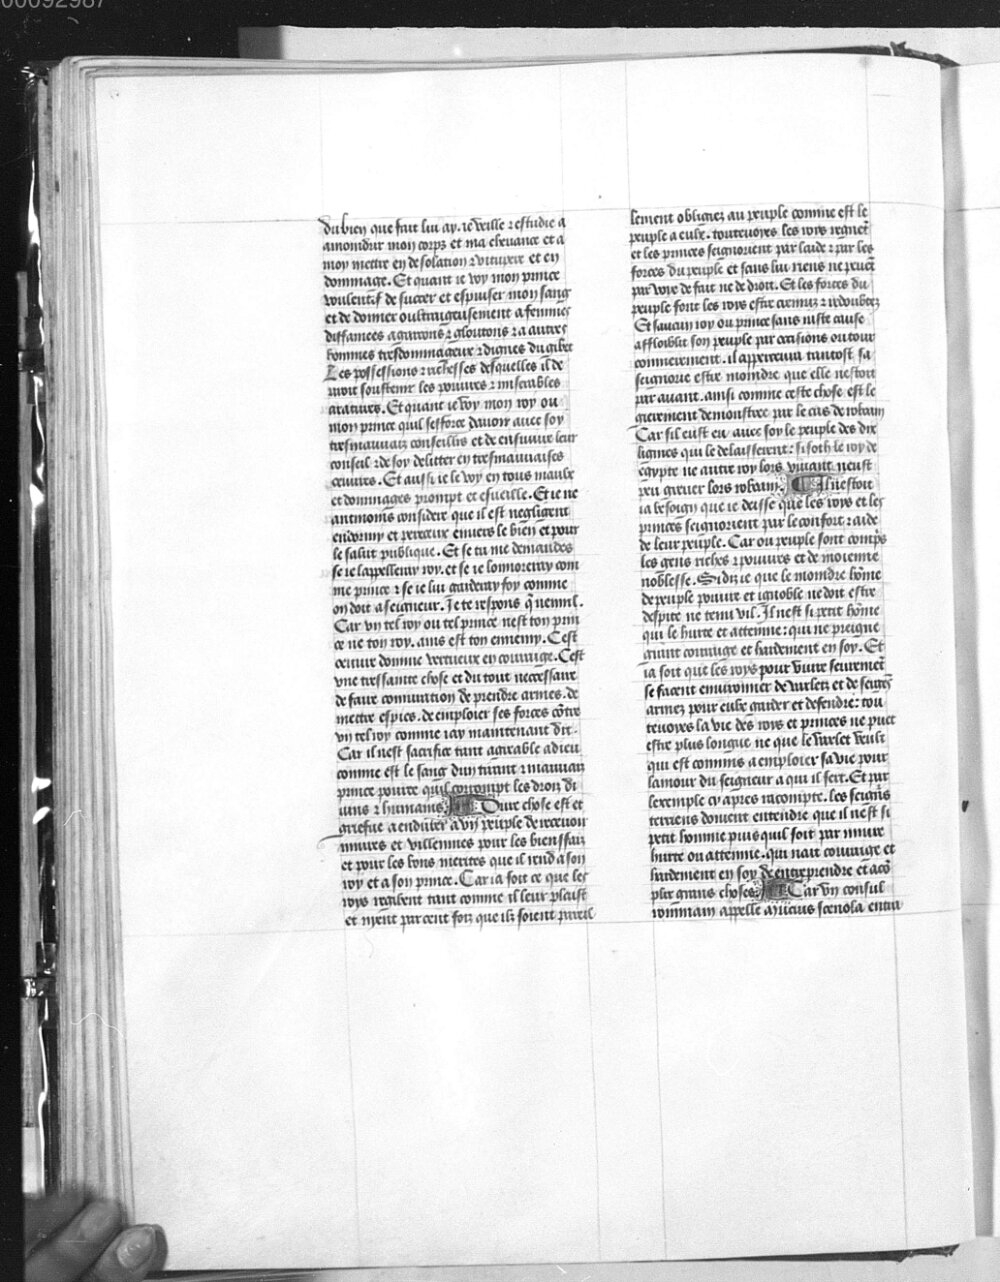 00092987
du bien que fait lui ay. ie veille ⁊ estudie a
amoindrir mon corps et ma chevance et a
moy mettre en desolation ⁊ vitupere et en
dommage. Et quant ie voy mon prince
voulentif de succer et espuiser mon sang
et de donner oultraigeusement a femmes
diffamees a garcons ⁊ gloutons ⁊ a autres
hommes tresdommageux ⁊ dignes du gibet
Les possessions ⁊ richesses desquelles il de
uroit soustenir les pouures ⁊ miserables
creatures. Et quant ie voy mon roy ou
mon prince quil sefforce dauoir auec soy
tresmauuaiz conseilliers et de ensuiuir leur
conseil ⁊ de soy delitter en tresmauuaises
oeuures. Et aussi ie le voy en tous maulx
et dommages prompt et esueille. Et ie ne
antmoins considere que il est negligent
endormy et pereceux enuers le bien et pour
le salut publique. Et se tu me demandes
se ie lappelleray roy. et se ie lonnoreray com
me prince ⁊ se ie lui garderay foy comme
on doit a seigneur. Je te respons q̃ nennil.
Car vn tel roy ou tel prince nest ton prin
ce ne ton roy. ains est ton ennemy. Cest
oeuure domme vertueux en couraige. Cest
vne tressainte chose et du tout necessaire
de faire coniuration de prendre armes. de
mettre espies. de emploier ses forces cõtre
vn tel roy comme iay maintenant dit.
Car il nest sacrifice tant agreable a dieu
comme est le sang dun tirant ⁊ mauuaiz
prince pource quil corrompt les droiz di
uins ⁊ humains. Dure chose est et
griefue a endurer a vn peuple de receuoir
iniures et villennies pour les biensfaiz
et pour les bons merites que il rend a son
roy et a son prince. Car ia soit ce que les
roys regibent tant comme il leur plaist
et nyent par cent foiz que ilz soient pareil
lement obligiez au peuple comme est le
peuple a eulx. toutevoyes les roys regnẽt
et les princes seignorient par laide ⁊ par les
forces du peuple et sans lui riens ne peuẽt
par voye de fait ne de droit. Et les forces du
peuple font les roys estre cremuz ⁊ redoubtez
Et saucun roy ou prince sans iuste cause
affloiblit son peuple par occisions ou tour
conneement. il apperceura tantost sa
seignorie estre moindre que elle nestoit
par auant. ainsi comme ceste chose est le
gierement demonstree par le cas de roboam
Car sil eust eu auec soy le peuple des dix
lignees qui le delaisserent: si soth le roy de
egypte ne autre roy lors viuant neust
peu greuer lors roboam. Il nestoit
ia besoign que ie deisse que les roys et les
princes seignorient par le confort ⁊ aide
de leur peuple. Car ou peuple sont comp̃s
les gens riches ⁊ pouures et de moienne
noblesse. Si diz ie que le moindre hõme
de peuple pouure et ignoble ne doit estre
despite ne tenu vil. Il nest si petit hõme
qui le hurte et attemne: qui ne preigne
grant couraige et hardement en soy. Et
ia soit que les roys pour viure seuremẽt
se facent enuironner de varletz et de sergẽs
armez pour eulx garder et defendre: tou
tevoyes la vie des roys et princes ne puet
estre plus longue ne que le varlet veult
qui est commis a emploier sa vie pour
lamour du seigneur a qui il sert. Et par
lexemple cy apres racompte. les seignr̃s
terriens doiuent entendre que il nest si
petit homme puis quil soit par iniure
hurte ou attemne. qui nait couraige et
hardement en soy de entreprendre et acõ
plir grans choses. Car vn consul
rommain appelle Mucius scenola entra